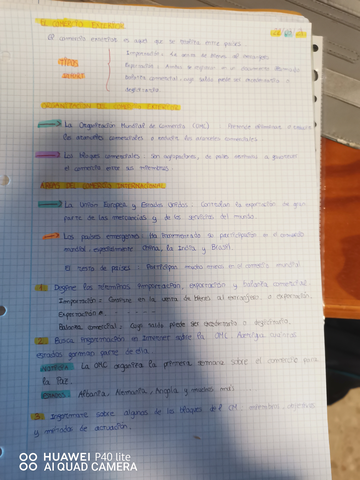 EL COMERCIO EXTERIOR
El comercio exterior es aquel que se realiza entre países.
TIPOS
Importación - Es
Exportación -
Balanza comercial - cuyo saldo puede ser excedentaria o
deficitaria.
ORGANIZACIÓN DEL COMERCIO EXTERIOR
La Organización Mundial de Comercio (OMC)
los acuerdos comerciales e
Los bloques comerciales - Son agrupaciones de países
el comercio entre sus miembros.
ÁREAS DEL COMERCIO INTERNACIONAL
La Unión Europea y Estados Unidos. Controlan la exportación de gran
parte de las mercancías y de los servicios del mundo.
Los países emergentes. Ha incrementado su participación en el comercio
mundial, especialmente China, la India y Brasil.
El resto de países. Participa mucho menos en el comercio mundial.
1. Define los términos importación, exportación y balanza comercial.
Importación - Consiste en la venta de bienes al extranjero o exportación.
Exportación
Balanza comercial - Cuyo saldo puede ser excedentaria o deficitaria.
2. Busca información en internet sobre la OMC. Averigua
estados forman parte de ella.
La OMC organiza la primera semana sobre el comercio para
la Paz.
Albania, Alemania, Angola y muchos más.
3. Infórmate sobre algunos de los bloques del CM.
y métodos de actuación.
HUAWEI P40 lite
AI QUAD CAMERA